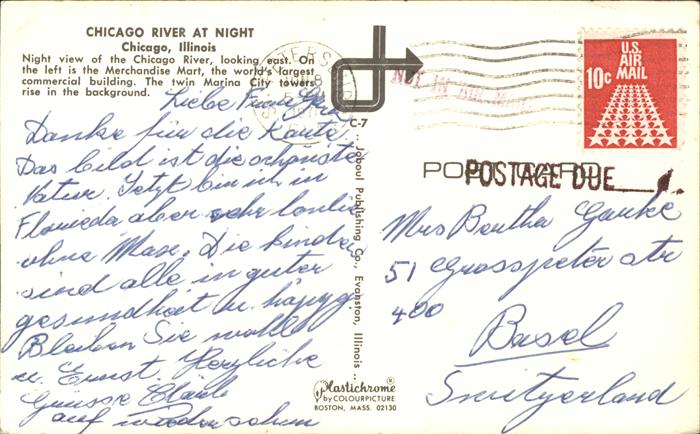 CHICAGO RIVER AT NIGHT
Chicago, Illinois
Night view of the Chicago River, looking east. On
the left is the Merchandise Mart, the world's largest
commercial building. The twin Marina City towers
rise in the background.
Liebe Frau
Danke für die Karte
Das bild ist die schönste
Natur. Jetzt bin ich in
Florieda aber sehr
ohne Max. Die kinder
sind alle in guter
gesundheit u. happy.
Bleiben Sie wohl
u. Ernst. Herzliche
Grüsse
auf wiedersehen
C-7
Joboul Publishing Co., Evanston, Illinois
Plastichrome®
by COLOURPICTURE
BOSTON, MASS. 02130
ST PETERSBURG
NOT IN AIR MAIL
U.S.
AIR
MAIL
10c
POST CARD
POSTAGE DUE
Mrs Bertha
51 Grosspeter str
400
Basel
Switzerland